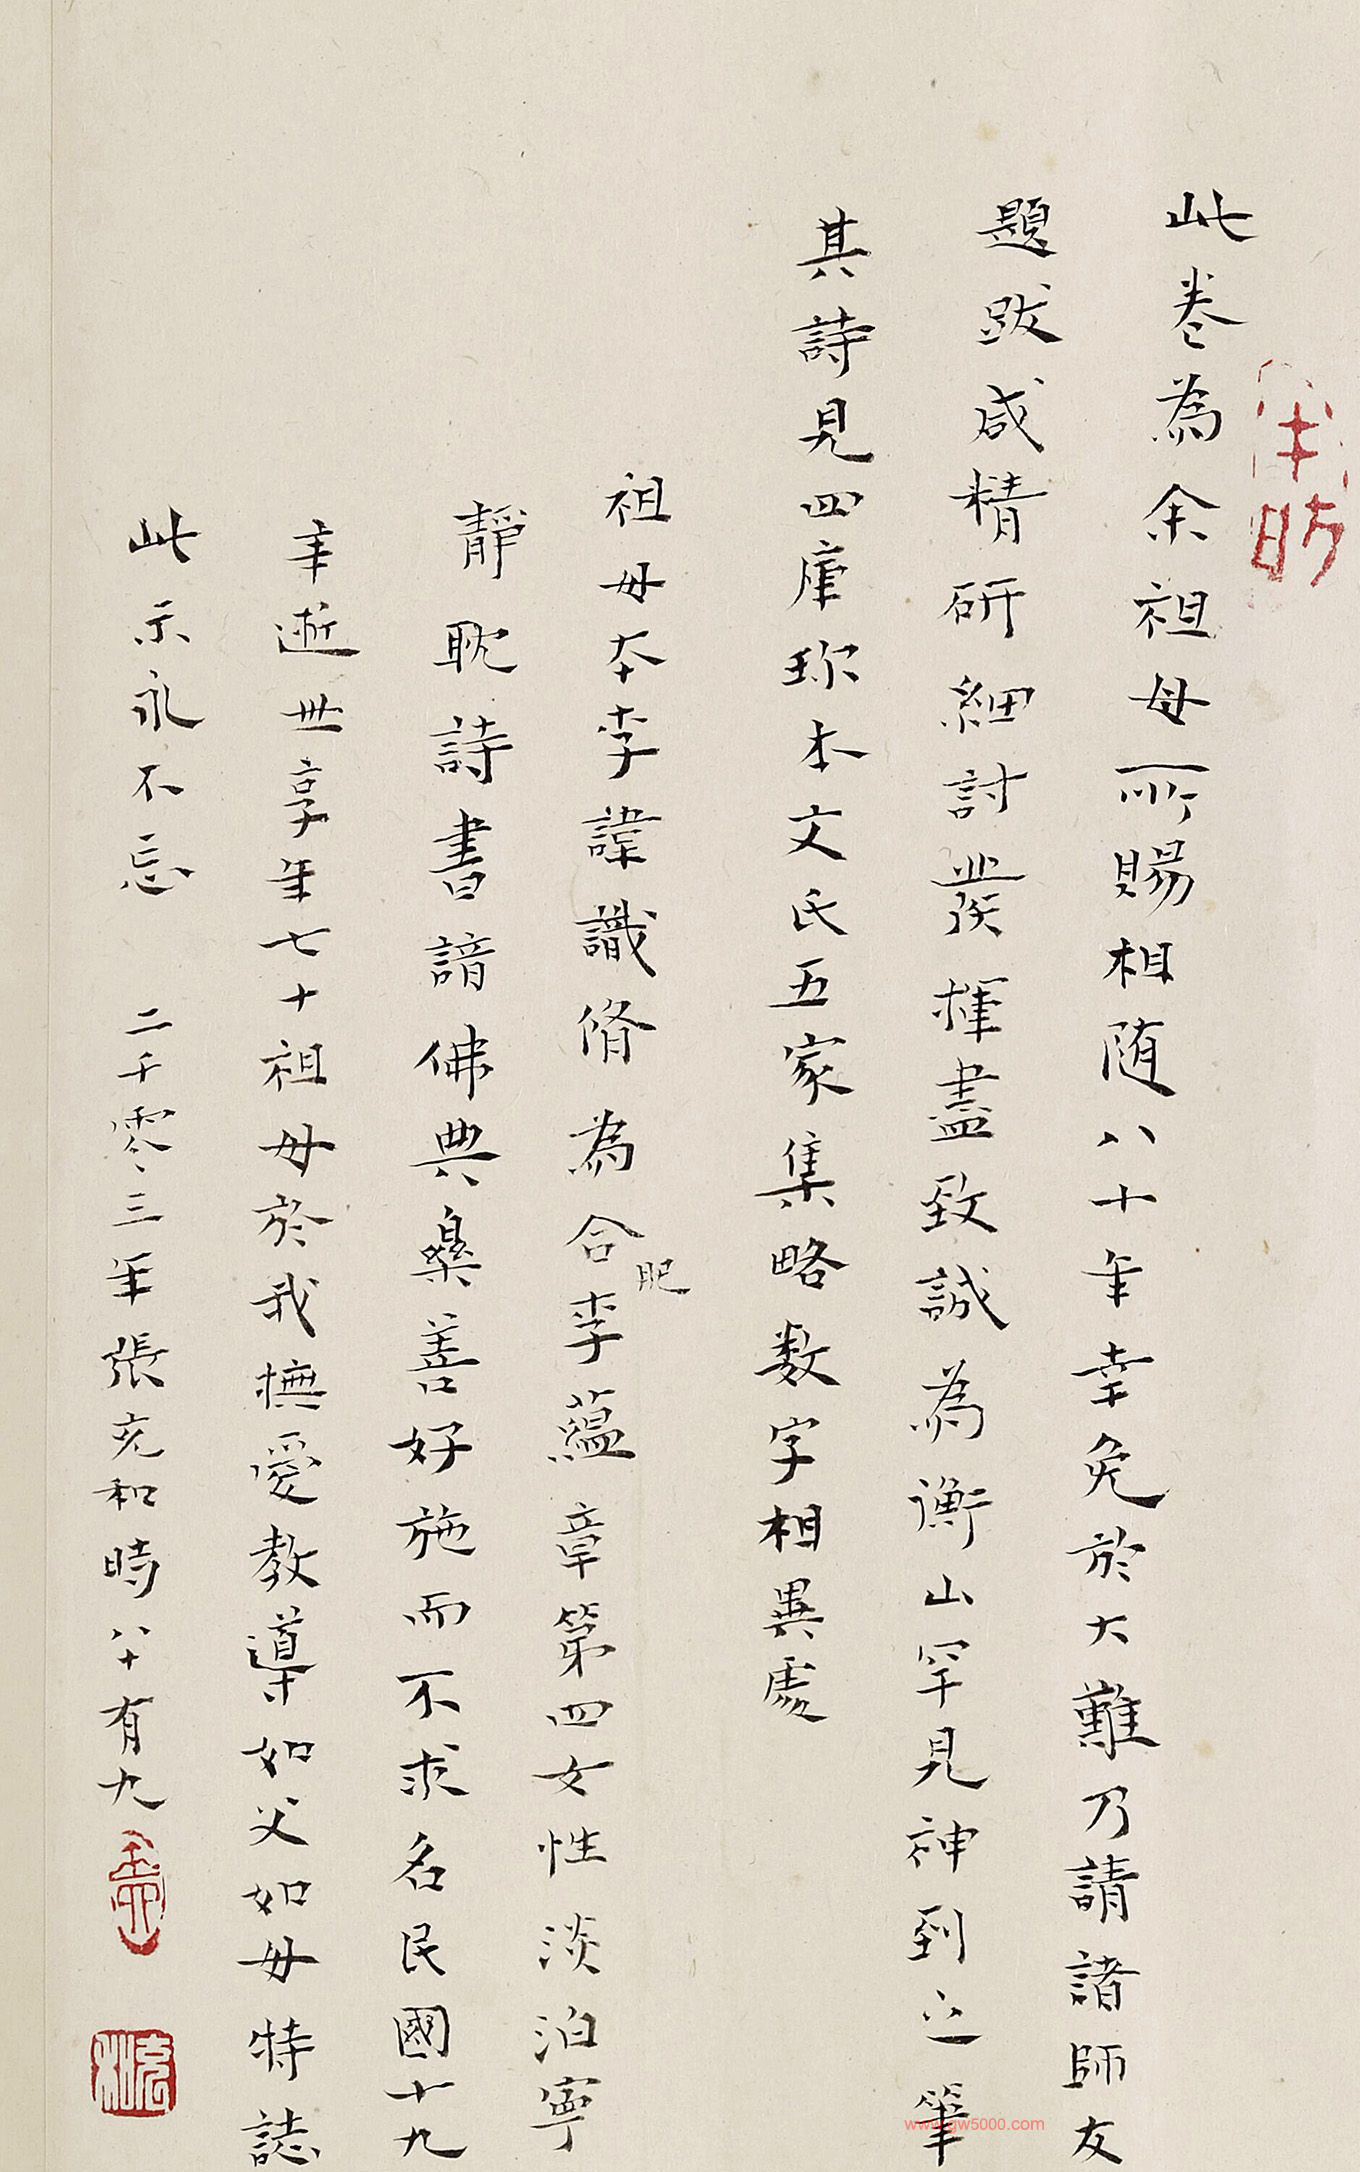 此卷為余祖母所賜相随八十年幸免於大難乃請諸師友
題跋咸精研細討發揮盡致誠為衡山罕見神到之筆
其詩見四庫珍本文氏五家集略数字相異處
祖母本李諱識脩為合肥李蘊章第四女性淡泊寧
靜耽詩書諳佛典樂善好施而不求名民國十九
年逝世享年七十祖母於我撫愛教導如父如母特誌
此示永不忘 二千零三年張充和時八十有九
充和
www.gw5000.com